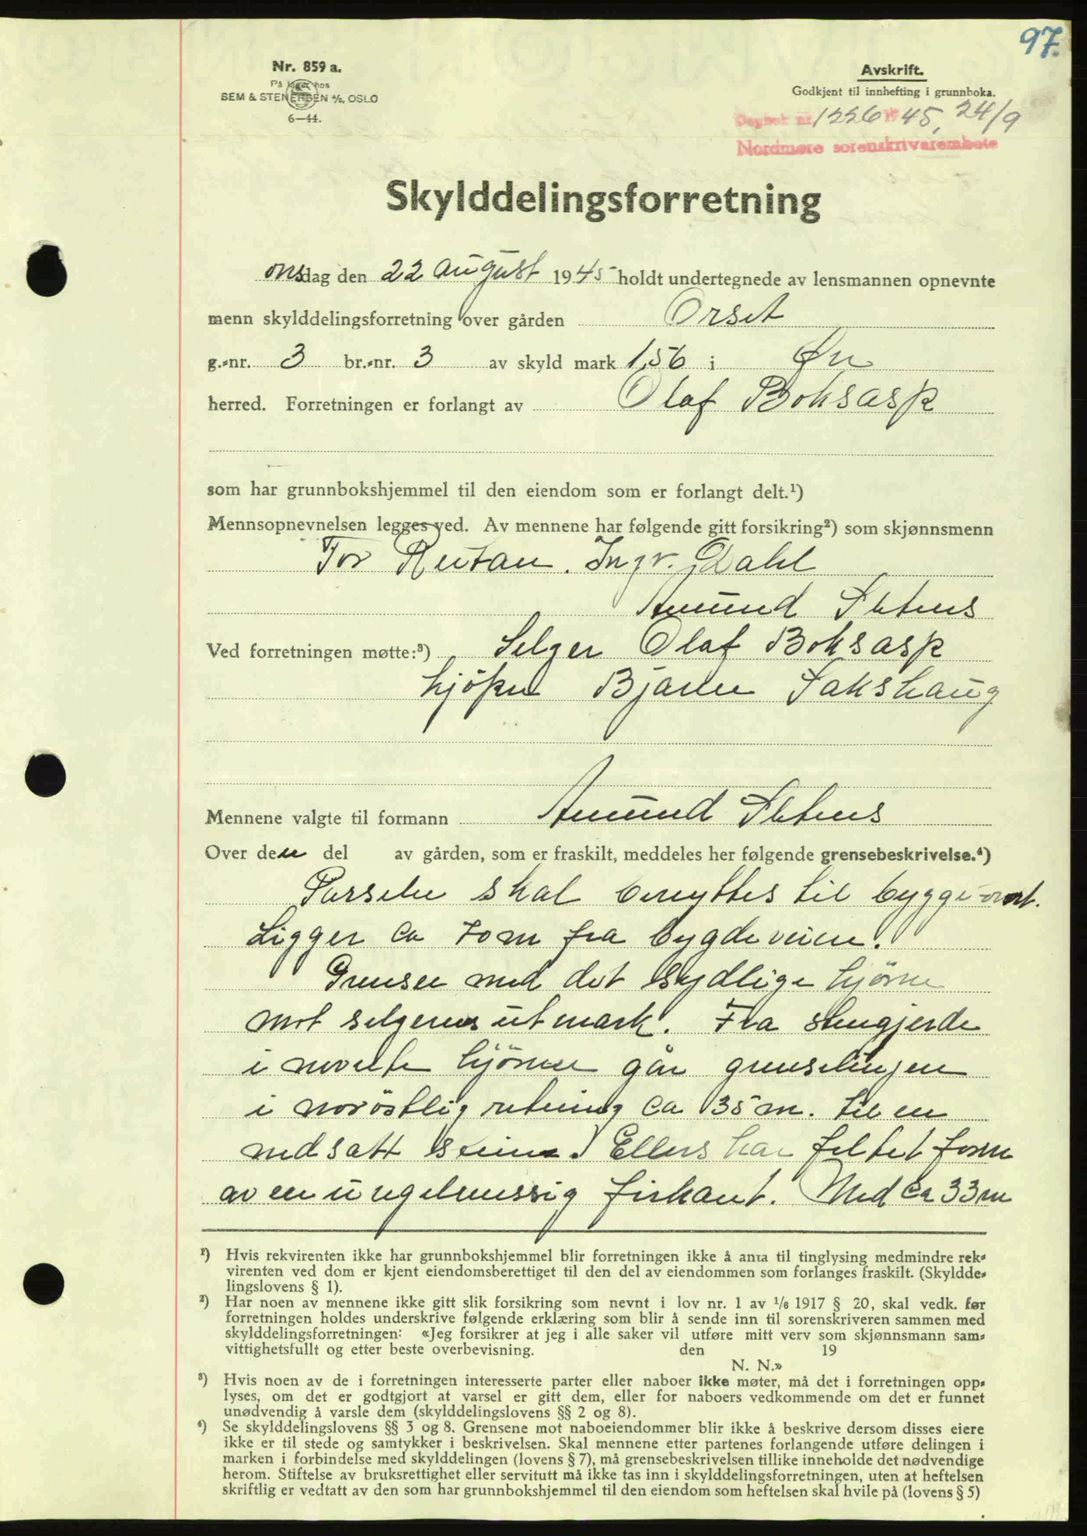 97.
Nr. 859 a.
På lager hos
SEM & STENERSEN A/S, OSLO
6—44.
Avskrift.
Godkjent til innhefting i grunnboka.
Dagbok nr. 1226 1945, 24/9
Nordmøre sorenskrivarembete
Skylddelingsforretning
onsdag den 22 august 1945 holdt undertegnede av lensmannen opnevnte
menn skylddelingsforretning over gården Orset
g.-nr. 3 br.-nr. 3 av skyld mark 1,56 i Øre
herred. Forretningen er forlangt av Olaf Boksasp
som har grunnbokshjemmel til den eiendom som er forlangt delt.¹)
Mennsopnevnelsen legges ved. Av mennene har følgende gitt forsikring²) som skjønnsmenn
Tor Rustan. Ingv. Dahl
Amund Stens
Ved forretningen møtte:³) Selger Olaf Boksasp
kjöper Bjarne Sakshaug
Mennene valgte til formann Amund
Over den del av gården, som er fraskilt, meddeles her følgende grensebeskrivelse.⁴)
Parselen skal benyttes til bygge-tomt.
Ligger ca 70 m fra bygdeveien.
Grenser med det sydlige hjörne
mot selgerens utmark. Fra stengjerde
i nevnte hjörne går grenselinjen
i noröstlig retning ca 35 m. til en
nedsatt stein. Ellers har feltet form
av en uregelmessig firkant. Med ca 33 m
¹) Hvis rekvirenten ikke har grunnbokshjemmel blir forretningen ikke å anta til tinglysing medmindre rek-
virenten ved dom er kjent eiendomsberettiget til den del av eiendommen som forlanges fraskilt. (Skyldde-
lingslovens § 1).
²) Har noen av mennene ikke gitt slik forsikring som nevnt i lov nr. 1 av 1/6 1917 § 20, skal vedk. før
forretningen holdes underskrive følgende erklæring som blir å sende inn til sorenskriveren sammen med
skylddelingsforretningen: «Jeg forsikrer at jeg i alle saker vil utføre mitt verv som skjønnsmann sam-
vittighetsfullt og etter beste overbevisning. den 19
N. N.»
³) Hvis noen av de i forretningen interesserte parter eller naboer ikke møter, må det i forretningen opp-
lyses, om det er godtgjort at varsel er gitt dem, eller for naboers vedkommende om det er funnet
unødvendig å varsle dem (skylddelingslovens §§ 2 og 8).
⁴) Se skylddelingslovens §§ 3 og 8. Grensene mot naboeiendommer blir ikke å beskrive dersom disses eiere
ikke er til stede og samtykker i beskrivelsen. Skal mennene etter partenes forlangende utføre delingen i
marken i forbindelse med skylddelingen (lovens § 7), må grensebeskrivelsen tillike inneholde det nødvendige
herom. Stiftelse av bruksrettighet eller servitutt må ikke tas inn i skylddelingsforretningen, uten at heftelsen
skriftlig er vedtatt av den som har grunnbokshjemmel til den eiendom som heftelsen skal hvile på (lovens § 5)